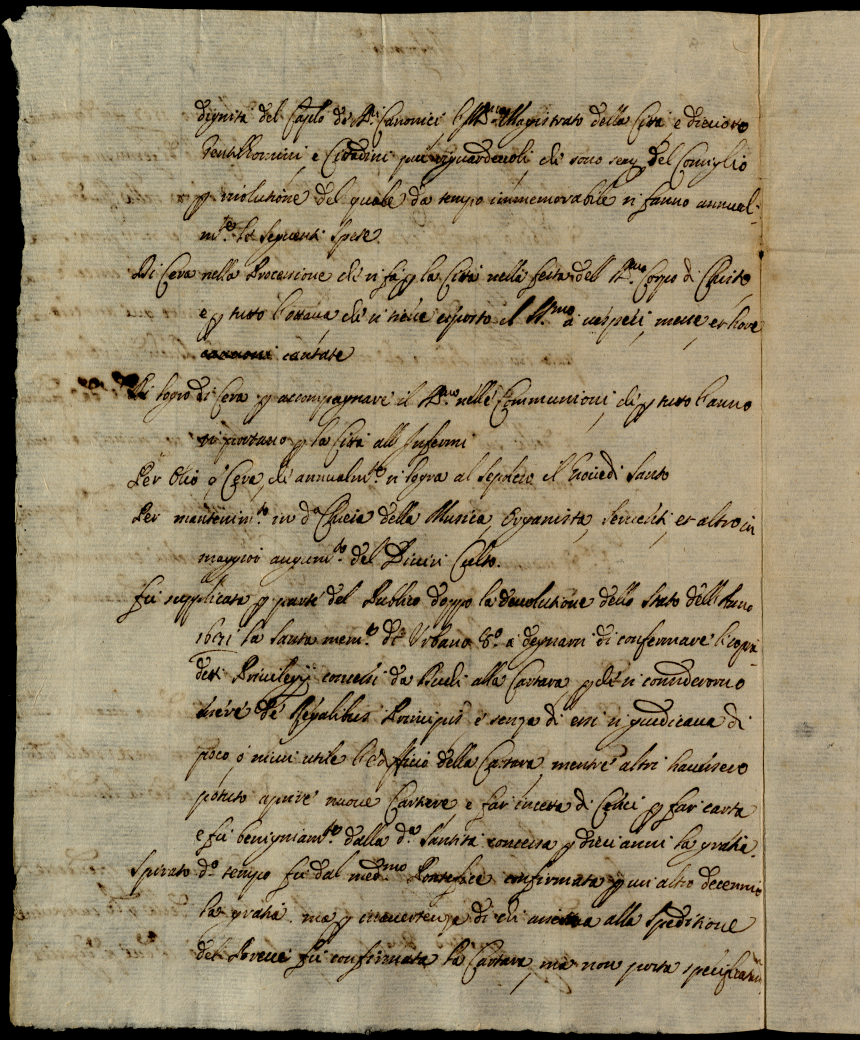 dignità del Caplo de SS.ri Canonici l'Ill.mo Magistrato della Città e diecioto
Gentilhomini, e Cittadini più riguardevoli che sono del Consiglio
p risolutione del quale da tempo immemorabile si fanno annual-
m.te le seguenti spese.
Di Cera nella Processione che si fà p la Città nella festa dell SS.mo Corpo di Christo,
e p tutto l'ottava, che si tiene esposto il SS.mo à vesperi, messe, et hore
cantate
Di sogro di Cera p accompagnare il SS.mo nelle Communioni, che p tutto l'anno
si portano p la Città all Infermi
Per Olio, ò Cera, che annualm.te si logra al Sepolcro il Giovedì Santo
Per mantenim.to in d.a Chiesa della Musica, Organista, Servienti, et altro in
maggior augum.to del Divin Culto.
fù supplicata p parte del Publico doppo la devolutione dello Stato dell'Anno
1631 la Santa mem.a di Urbano 8.o a degnarsi di confermare li copra
detti Privilegij concessi da Duchi alla Cartara, p che si considerorno
breve de Regalibus Principis e senza di essi si giudicava di
poco, ò niun utile l'edifficio della Cartara, mentre altri havessero
potuto aprire nuove Cartare, e far incetta di Cenci p far carta
e fù benigniam.te dalla d.a Santità concessa p dieci anni la gratia.
Spirato d.o tempo fù dal med.mo Pontefice confirmata p un altro decennio
la gratia. ma p inavertenza di chi alla Speditione
del Breve fù confirmata la Cartara, ma non posta